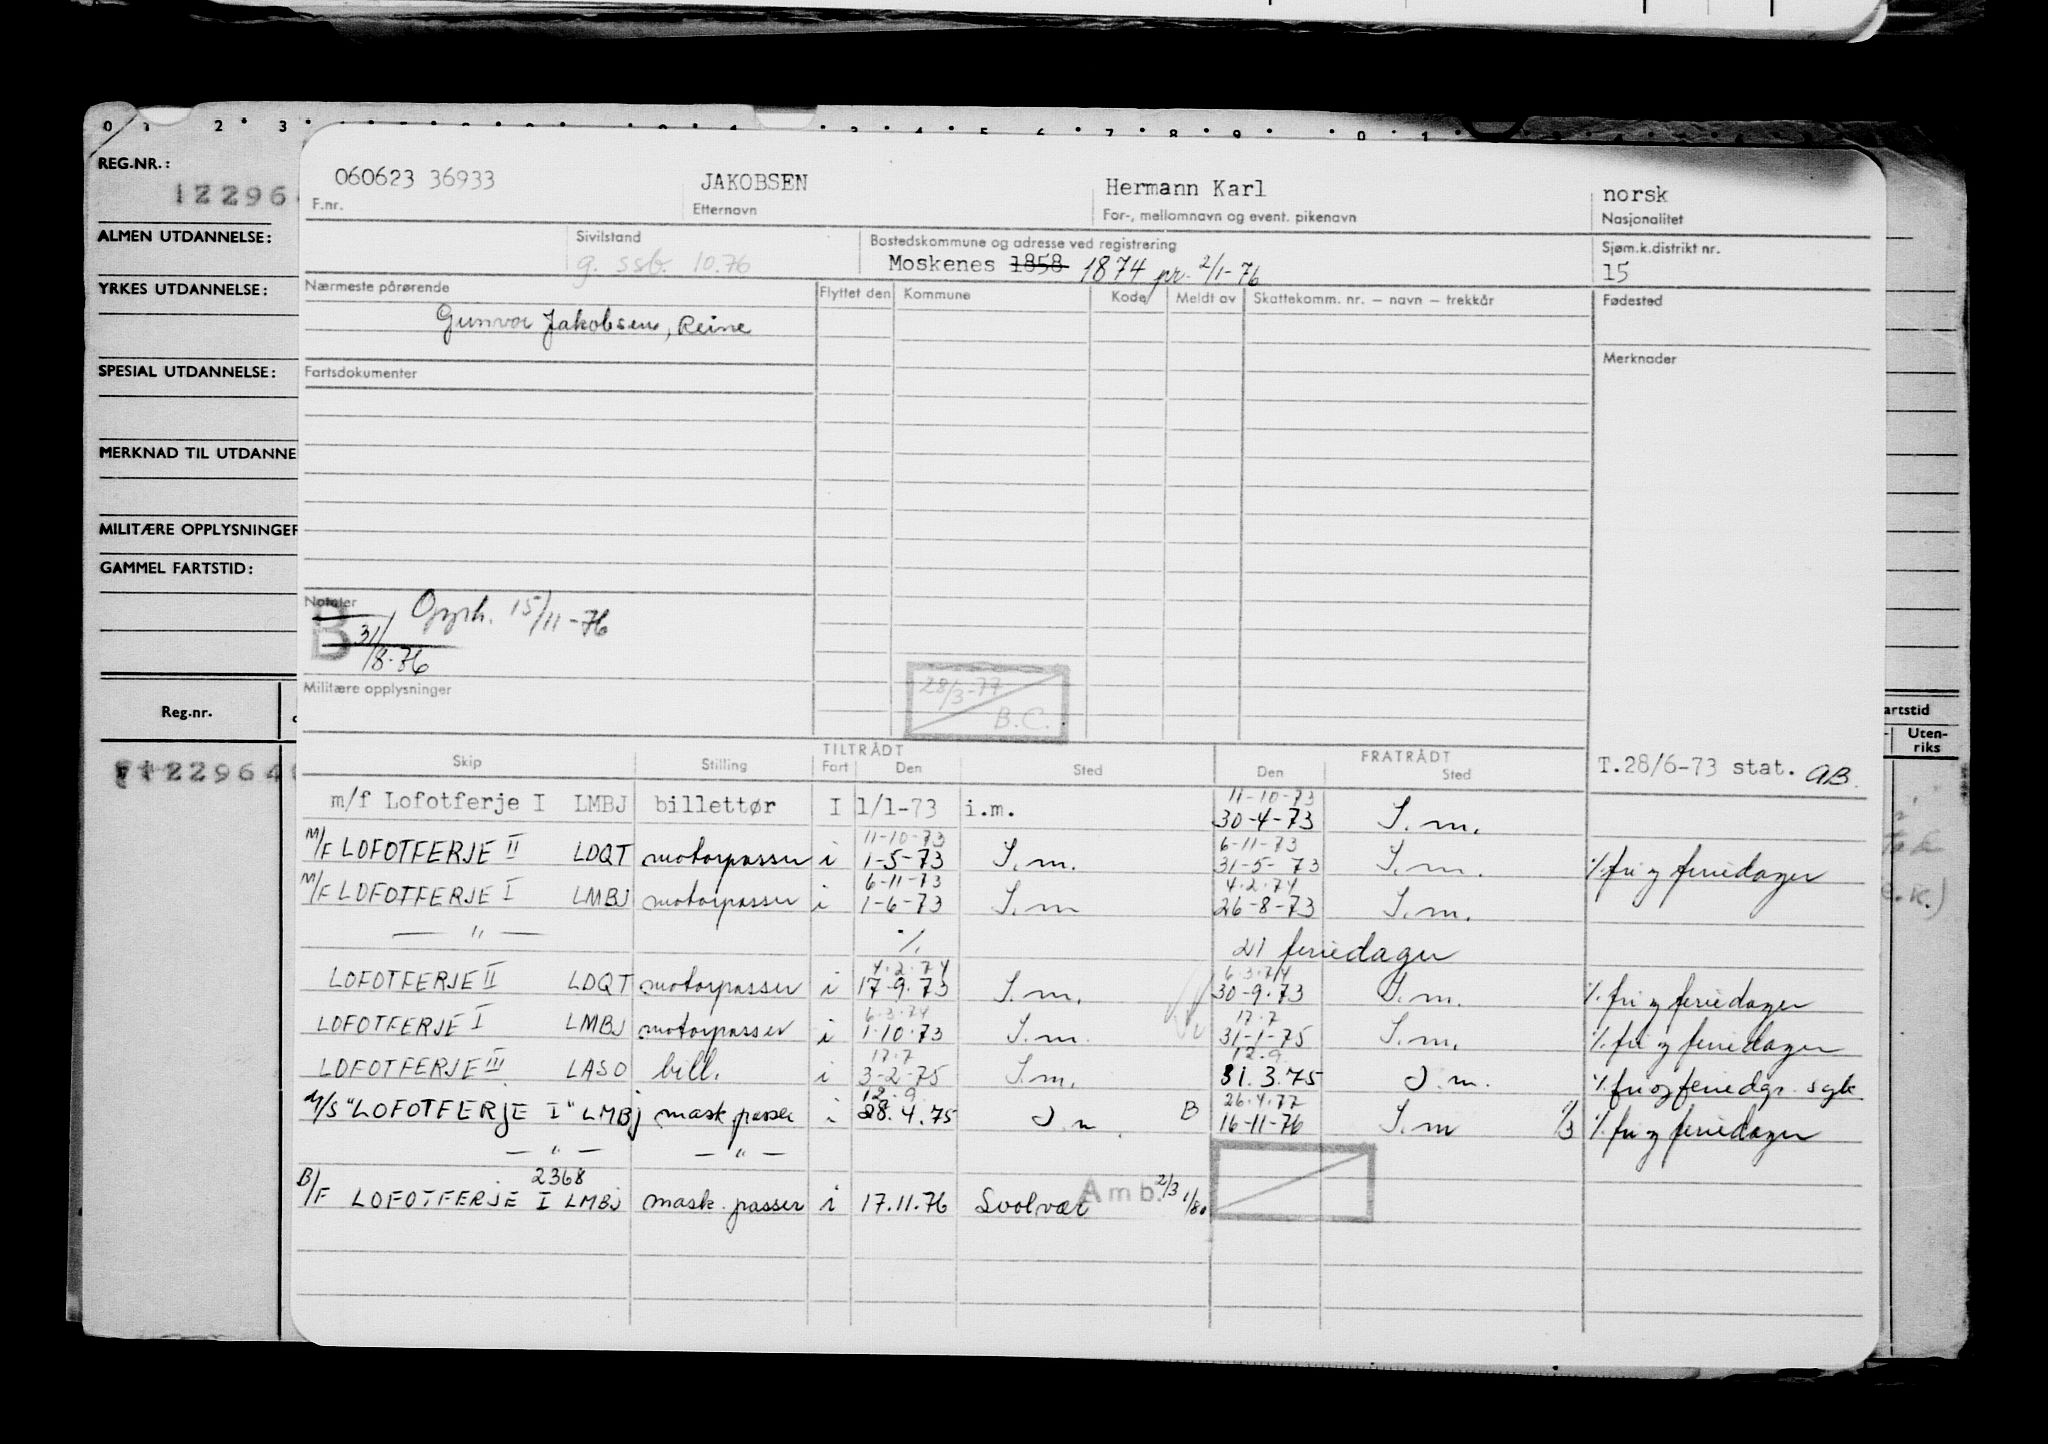 0 1 2 3
REG.NR.:
12296
ALMEN UTDANNELSE:
YRKES UTDANNELSE:
SPESIAL UTDANNELSE:
MERKNAD TIL UTDANNE
MILITÆRE OPPLYSNINGER
GAMMEL FARTSTID:
Reg.nr.
artstid
Uten-
riks
060623 36933 JAKOBSEN Hermann Karl norsk
F.nr. Etternavn For-, mellomnavn og event. pikenavn Nasjonalitet
Sivilstand Bostedskommune og adresse ved registrering Sjøm.k.distrikt nr.
g. ssb. 10.76 Moskenes 1858 1874 pr. 2/1-76 15
Nærmeste pårørende Flyttet den Kommune Kode Meldt av Skattekomm. nr. – navn – trekkår Fødested
Gunvor Jakobsen, Reine
Fartsdokumenter Merknader
Notater
B 31/8-76 Opph. 15/11-76
Militære opplysninger
28/3-77
B.C.
TILTRÅDT FRATRÅDT
Skip Stilling Fart Den Sted Den Sted
T.28/6-73 stat. AB.
11-10-73
m/f Lofotferje I LMBJ billettør I 1/1-73 i.m. 30-4-73 S.m.
11-10-73 6-11-73
M/F LOFOTFERJE II LDQT motorpasser i 1-5-73 S.m. 31-5-73 S.m. ./. fri og feriedager
6-11-73 4.2.74
M/F LOFOTFERJE I LMBJ motorpasser i 1-6-73 S.m 26-8-73 S.m.
— " — ./. 21 feriedager
4.2.74 6.3.74
LOFOTFERJE II LDQT motorpasser i 17-9.73 S.m. 30-9.73 S.m. ./. fri og feriedager
6.3.74 17.7
LOFOTFERJE I LMBJ motorpasser i 1.10.73 S.m. 31-1-75 S.m. ./. fri og feriedager
17.7 12.9.
LOFOTFERJE III LASO bill. i 3-2-75 S.m. 31.3.75 S.m. ./. fri og feriedgr. syk
12.9. 26.4.77
M/S "LOFOTFERJE I" LMBJ mask.passer i 28.4.75 B 16-11-76 S.m ./. fri og feriedager
— " — — " —
2368
B/F LOFOTFERJE I LMBJ mask. passer i 17.11.76 Svolvær Amb. 2/3 1/80